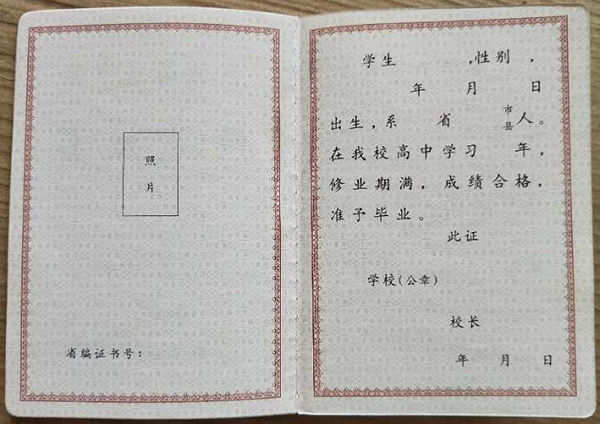 照
片
省编证书号：
学生 ，性别 ，
年 月 日
出生，系 省 市县 人。
在我校高中学习 年，
修业期满，成绩合格，
准予毕业。
此证
学校（公章）
校长
年 月 日